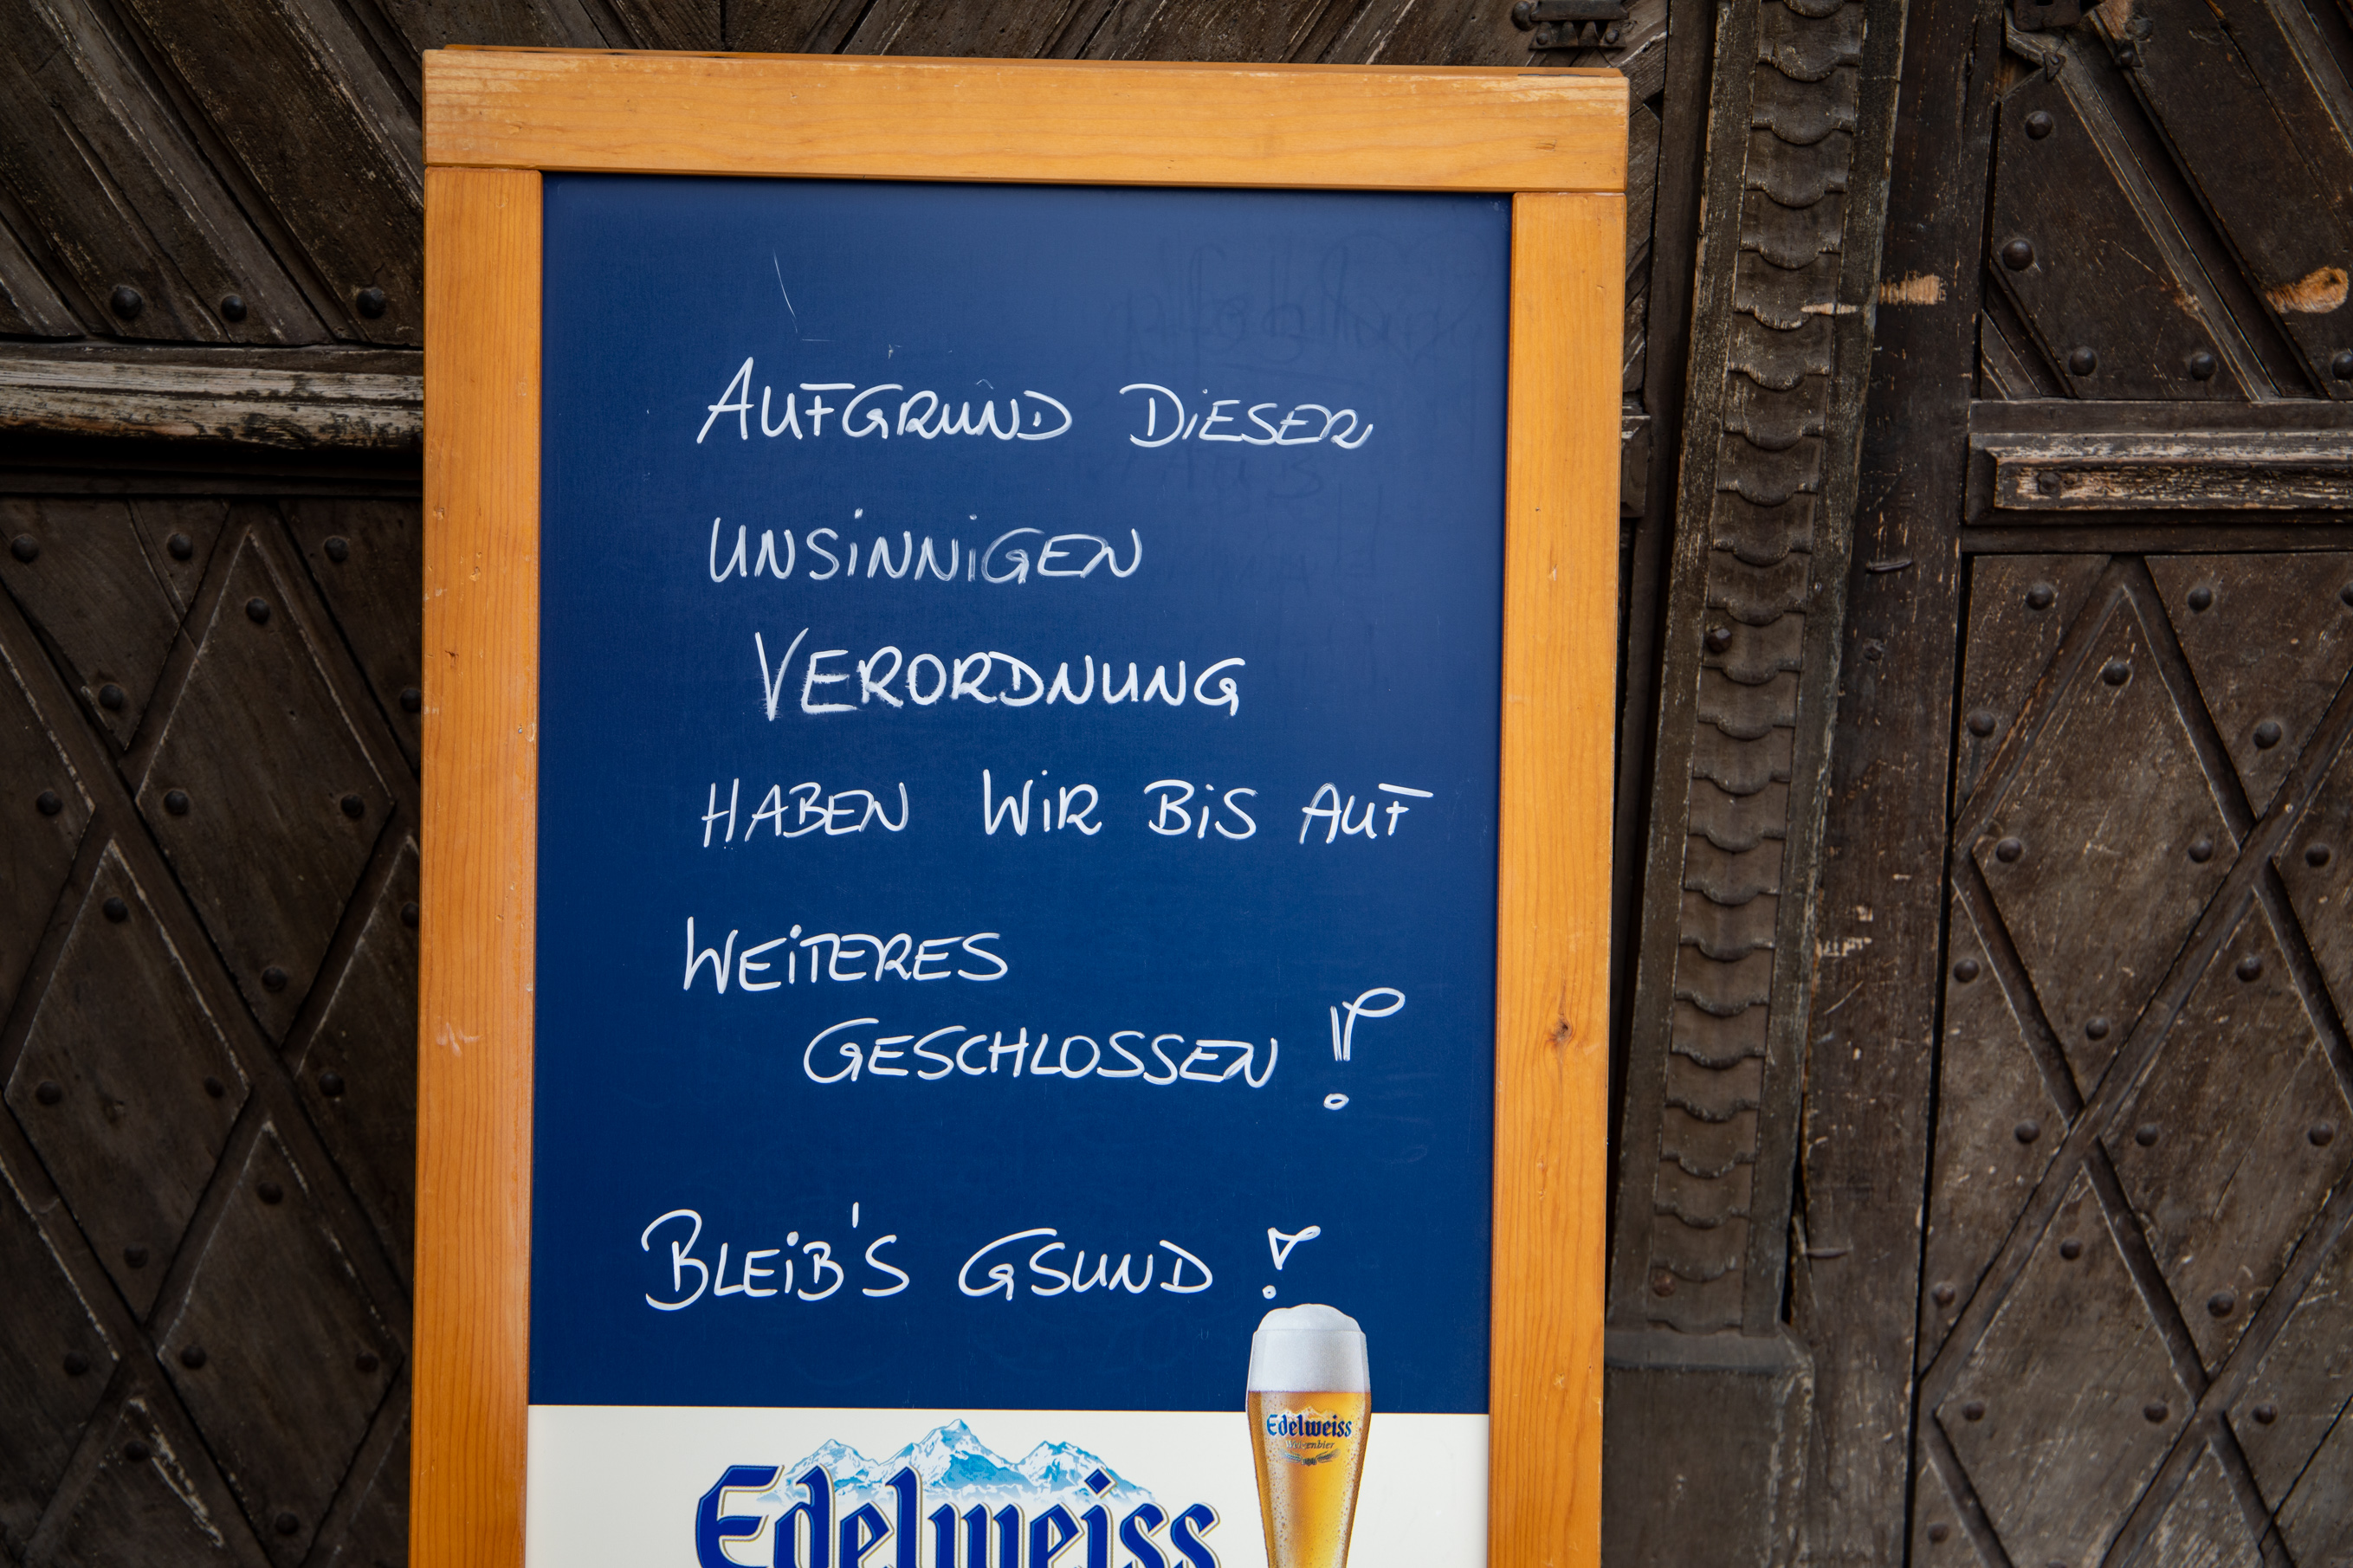 AUFGRUND DIESER
UNSINNIGEN
VERORDNUNG
HABEN WIR BIS AUF
WEITERES
GESCHLOSSEN !
BLEIB'S GSUND !
Edelweiss
Weizenbier
Edelweiss